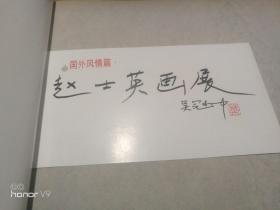 国外风情篇
赵士英画展
吴冠中
honor V9